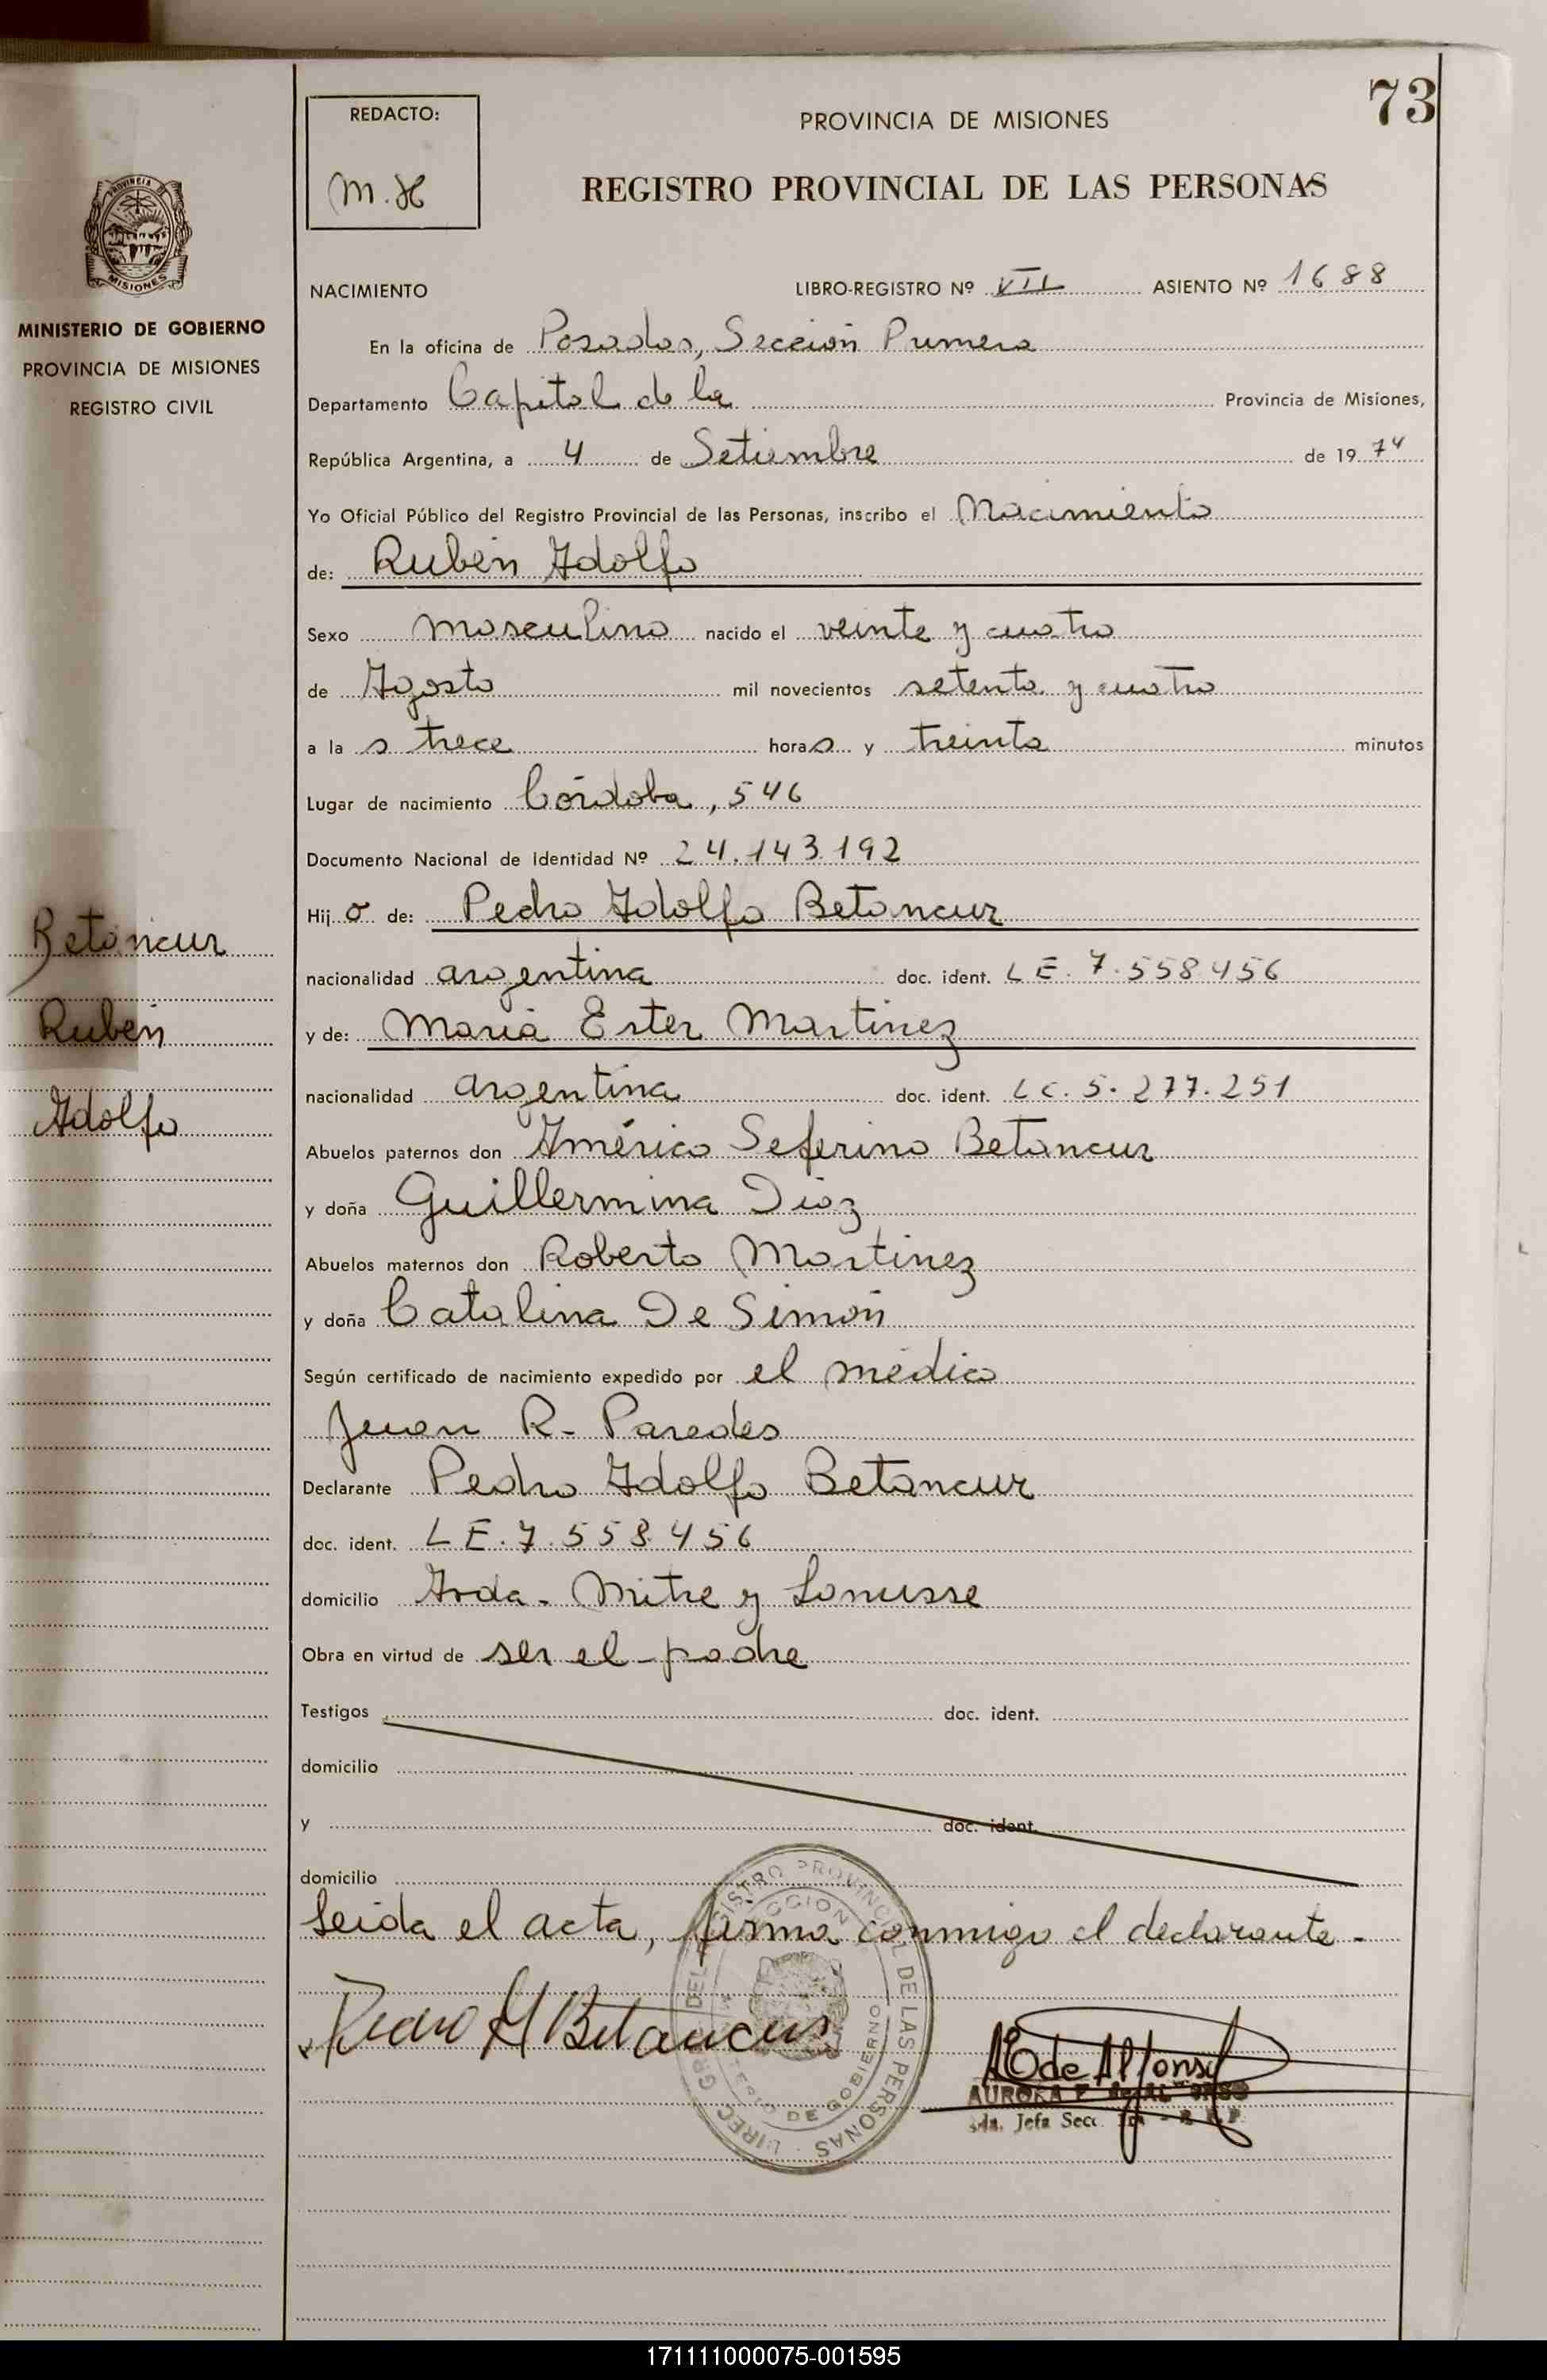 73
REDACTO:
M. H
PROVINCIA DE MISIONES
REGISTRO PROVINCIAL DE LAS PERSONAS
PROVINCIA DE
MISIONES
MINISTERIO DE GOBIERNO
PROVINCIA DE MISIONES
REGISTRO CIVIL
NACIMIENTO LIBRO-REGISTRO Nº VII ASIENTO Nº 1688
En la oficina de Posadas, Sección Primera
Departamento Capital de la Provincia de Misiones,
República Argentina, a 4 de Setiembre de 1974
Yo Oficial Público del Registro Provincial de las Personas, inscribo el Nacimiento
de: Rubén Adolfo
Sexo masculino nacido el veinte y cuatro
de Agosto mil novecientos setenta y cuatro
a la s trece horas y treinta minutos
Lugar de nacimiento Córdoba, 546
Documento Nacional de Identidad Nº 24.143.192
Hijo de: Pedro Adolfo Betancur
nacionalidad argentina doc. ident. LE. 7.558.456
y de: María Ester Martinez
nacionalidad argentina doc. ident. LC. 5.277.251
Abuelos paternos don Américo Seferino Betancur
y doña Guillermina Diaz
Abuelos maternos don Roberto Martinez
y doña Catalina De Simón
Según certificado de nacimiento expedido por el médico
Juan R. Paredes
Declarante Pedro Adolfo Betancur
doc. ident. LE. 7.558.456
domicilio Avda. Mitre y Lanusse
Obra en virtud de ser el padre
Testigos doc. ident.
domicilio
y doc. ident.
domicilio
Leída el acta, firma conmigo el declarante.
Betancur
Rubén
Adolfo
Pedro A Betancur
REGISTRO PROVINCIAL DE LAS PERSONAS
DE GOBIERNO
AE de Alfonso
AURORA E de
Jefa Secc.
171111000075-001595